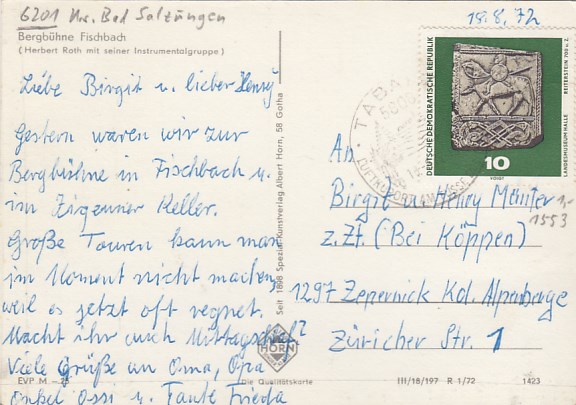 6201 Kr. Bad Salzungen
18.8.72
Bergbühne Fischbach
(Herbert Roth mit seiner Instrumentalgruppe)
Liebe Birgit u. lieber Henry
Gestern waren wir zur
Bergbühne in Fischbach u.
im Zigeuner Keller.
Große Touren kann man
im Moment nicht machen,
weil es jetzt oft regnet.
Macht ihr auch Mittagschlaf?
Viele Grüße an Oma, Opa
Onkel Ossi u. Tante Frieda
EVP M –.25
Seit 1898 Spezial-Kunstverlag Albert Horn, 58 Gotha
HORN
Die Qualitätskarte
III/18/197 R 1/72
1423
DEUTSCHE DEMOKRATISCHE REPUBLIK
REITERSTEIN 700 u. Z.
LANDESMUSEUM HALLE
10
VOIGT
TABA
5808
LUFTKURORT AM
An
Birgit u. Henry
1,-
1553
z.Zt. (Bei Köppen)
1297 Zepernick Kol. Alpenberge
Züricher Str. 1